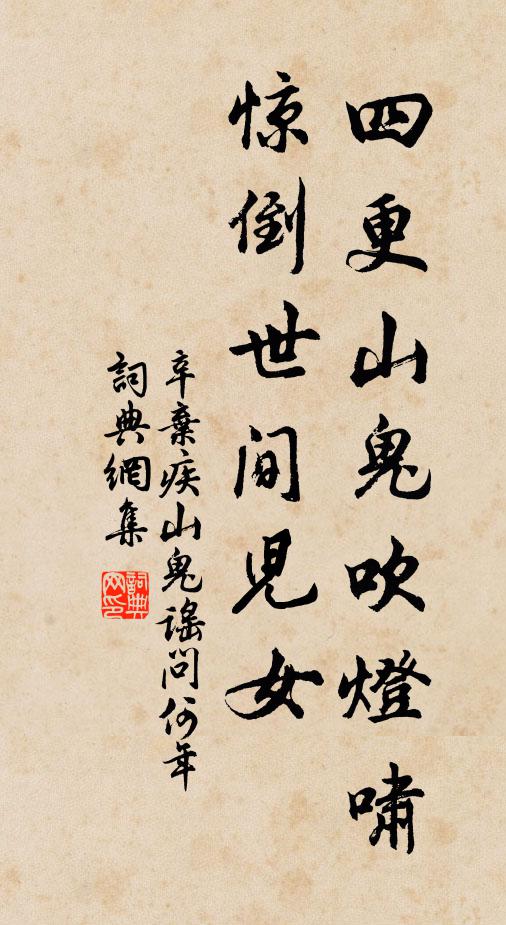 四更山鬼吹燈嘯
惊倒世間児女
辛棄疾山鬼謠問何年
詞典網集
詞典网印